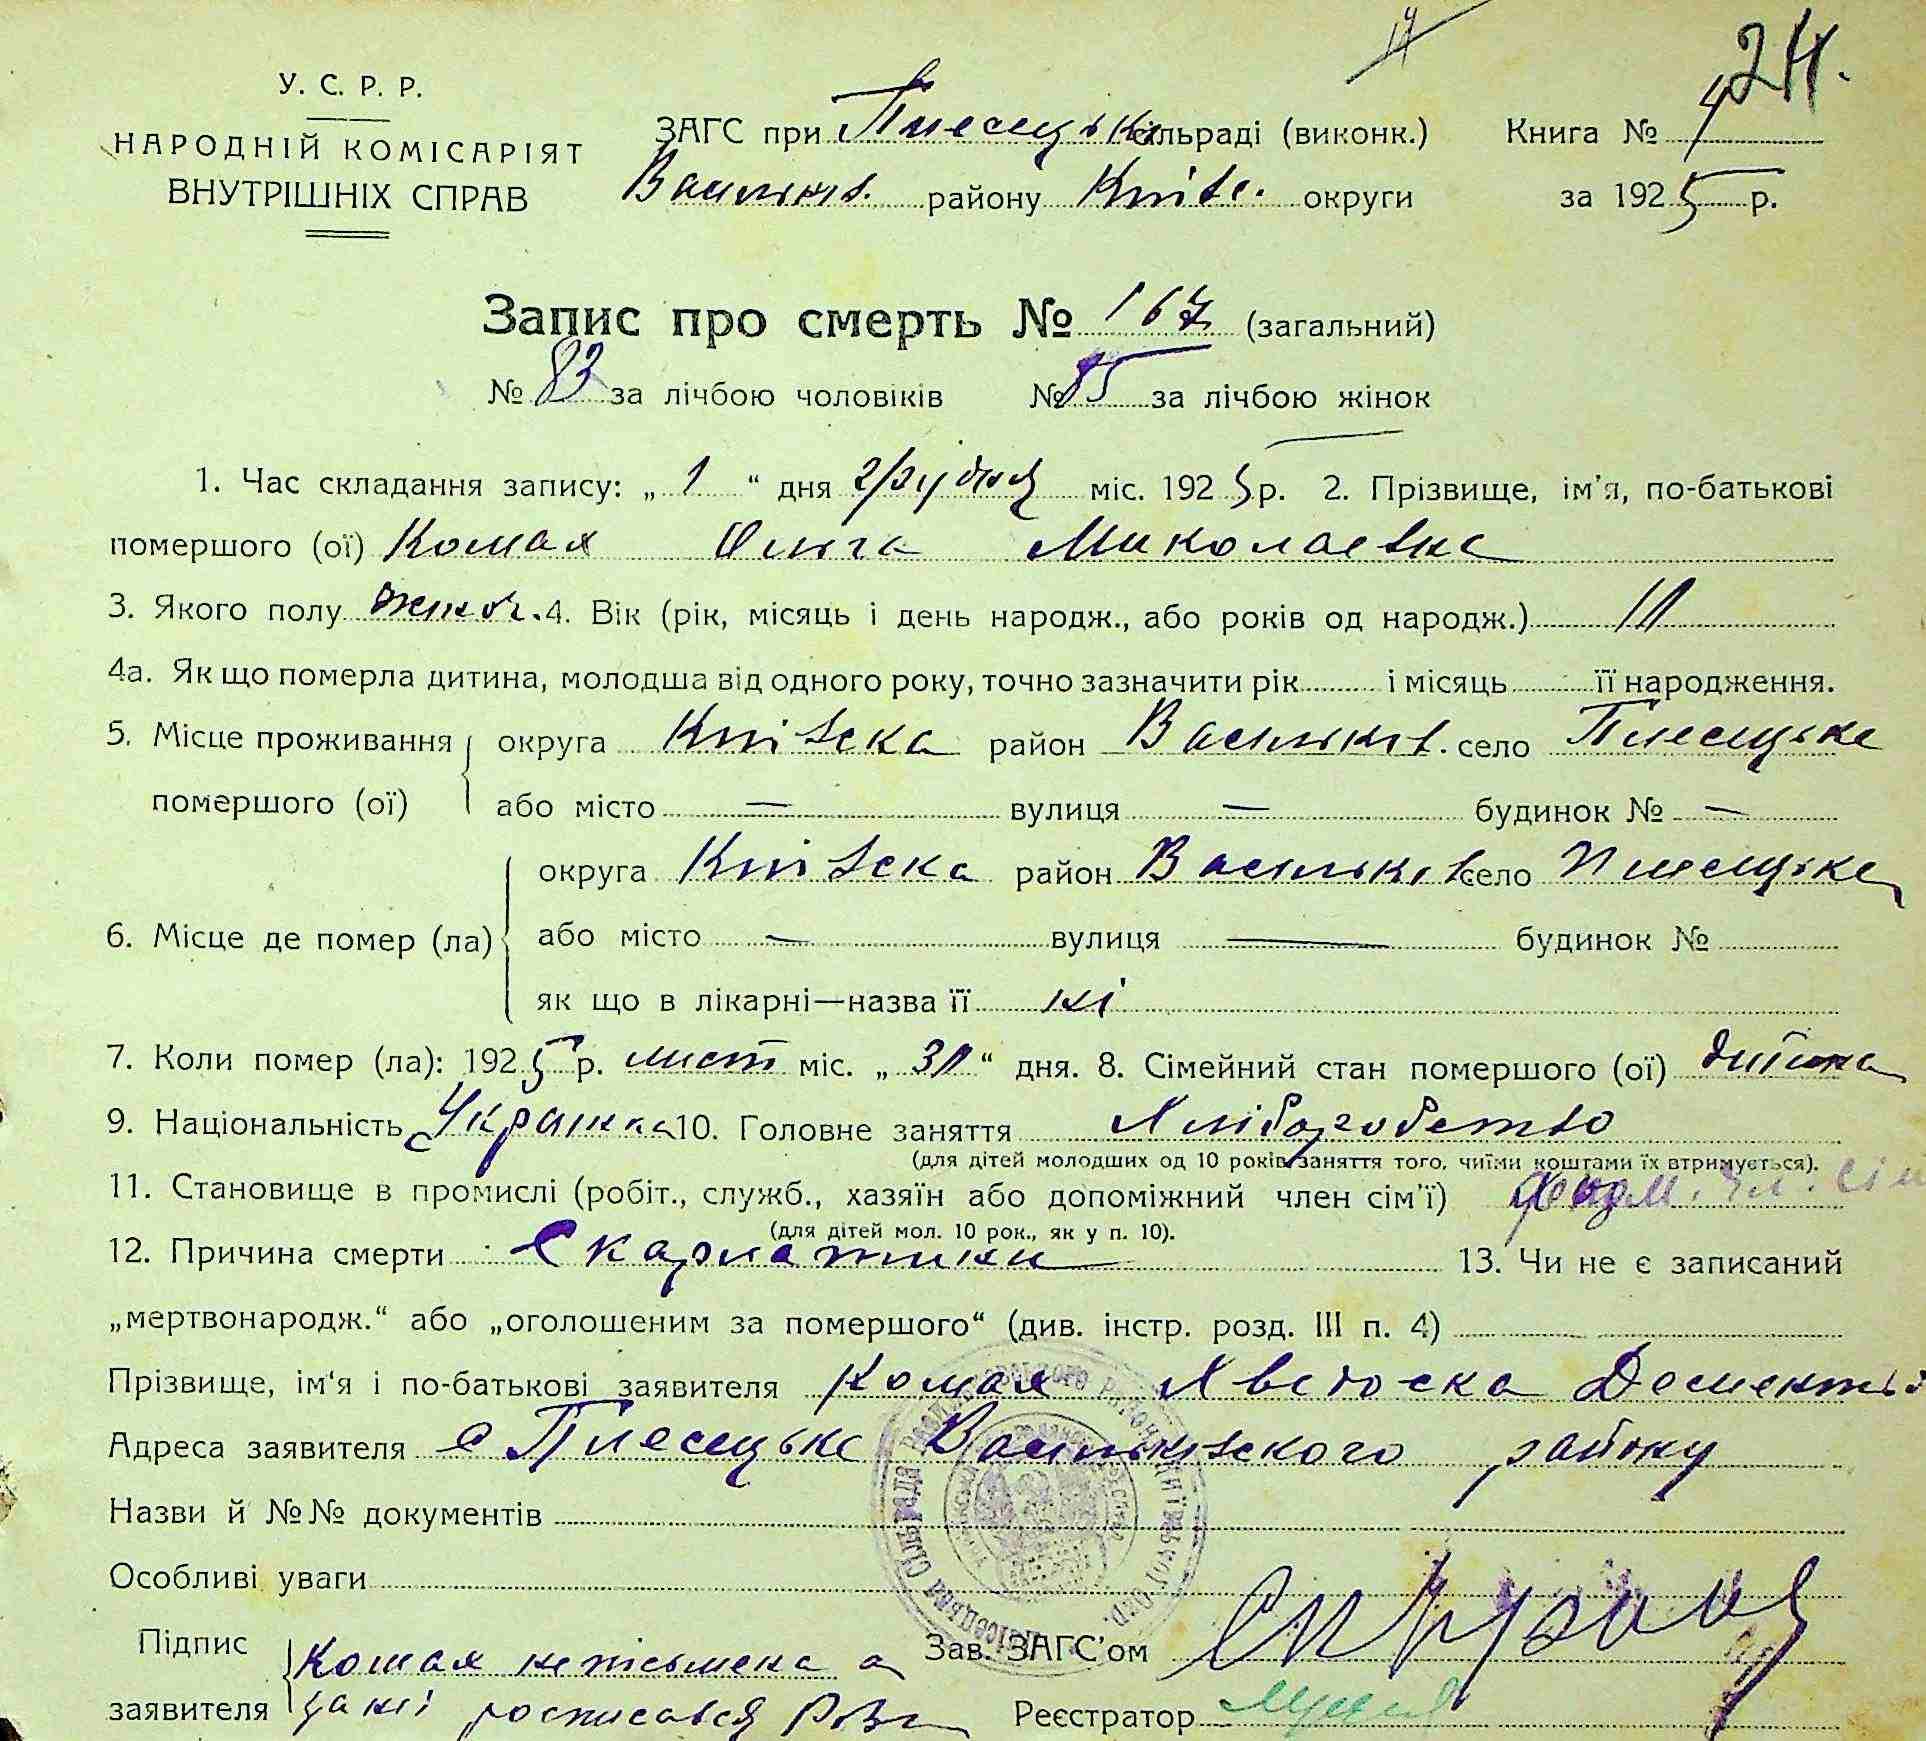 24.
У. С. Р. Р.
НАРОДНІЙ КОМІСАРІЯТ
ВНУТРІШНІХ СПРАВ
ЗАГС при Плесецькі сільраді (виконк.) Книга № 4
Васильків. району Київс. округи за 1925 р.
Запис про смерть № 167 (загальний)
№ 83 за лічбою чоловіків № 85 за лічбою жінок
1. Час складання запису: „ 1 “ дня грудня міс. 1925 р. 2. Прізвище, ім'я, по-батькові
помершого (ої) Комах Ольга Миколаевна
3. Якого полу жіноч. 4. Вік (рік, місяць і день народж., або років од народж.) 11
4а. Як що померла дитина, молодша від одного року, точно зазначити рік і місяць її народження.
5. Місце проживання округа Київска район Васильків. село Плесецьке
помершого (ої) або місто — вулиця — будинок № —
округа Київска район Васильків село Плесецьке
6. Місце де помер (ла) або місто — вулиця — будинок №
як що в лікарні—назва її ні
7. Коли помер (ла): 1925 р. лист міс. „ 30 “ дня. 8. Сімейний стан помершого (ої) дитина
9. Національність Украінка 10. Головне заняття Хліборобство
(для дітей молодших од 10 років заняття того, чиїми коштами їх втримується).
11. Становище в промислі (робіт., служб., хазяїн або допоміжний член сім'ї) допом. чл. сім
(для дітей мол. 10 рок., як у п. 10).
12. Причина смерти Скарлатини 13. Чи не є записаний
„мертвонародж.“ або „оголошеним за помершого“ (див. інстр. розд. III п. 4)
Прізвище, ім'я і по-батькові заявителя Комах Явдоска
Адреса заявителя с Плесецьке Васильківского району
Назви й №№ документів
Особливі уваги
Підпис Комах неписьмена а Зав. ЗАГС'ом
заявителя за неі росписався Реєстратор